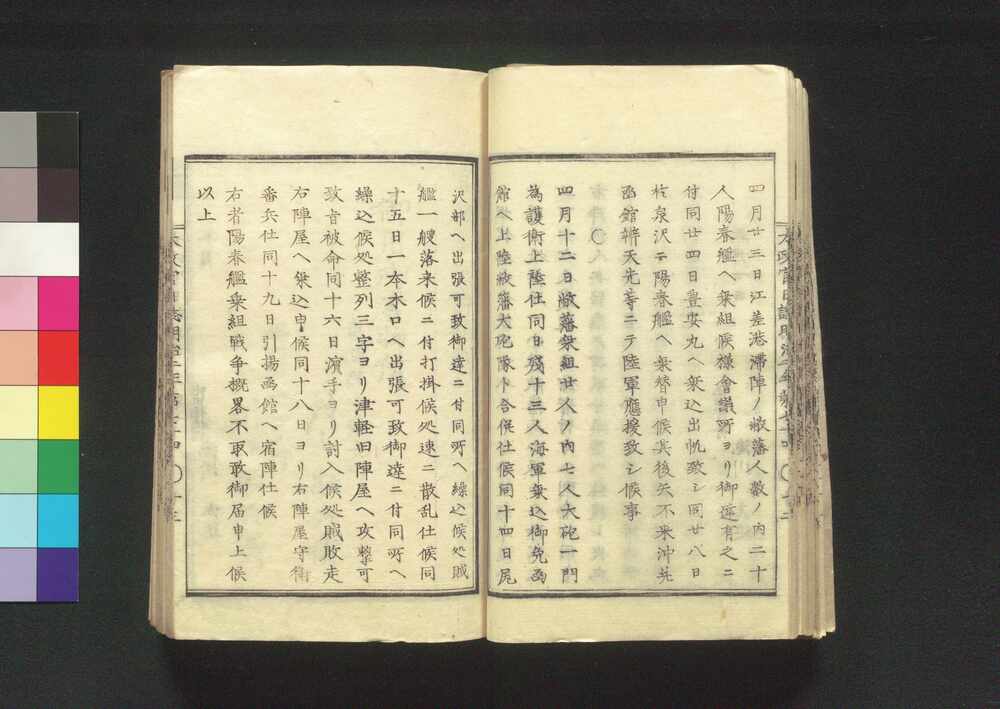 四月廿三日江差港滞陣ノ敝藩人数ノ内二十
人陽春艦ヘ乗組候様會議所ヨリ御達有之ニ
付同廿四日豊安丸ヘ乗込出帆致シ同廿八日
於泉沢ニ陽春艦ヘ乗替申候其後矢不来沖并
函館辨天先等ニテ陸軍應援致シ候事
四月十二日敝藩乗組廿人ノ内七人大砲一門
為護衛上陸仕同日残十三人海軍乗込御免函
館ヘ上陸敝藩大砲隊ト合併仕候同十四日尻
沢部ヘ出張可致御達ニ付同所ヘ繰込候処賊
艦一艘落来候ニ付打掛候処速ニ散乱仕候同
十五日一本木口ヘ出張可致御達ニ付同所ヘ
繰込候処整列三字ヨリ津軽旧陣屋ヘ攻撃可
致旨被命同十六日濱手ヨリ討入候処賊敗走
右陣屋ヘ乗込申候同十八日ヨリ右陣屋守衛
番兵仕同十九日引揚函館ヘ宿陣仕候
右者陽春艦乗組戦争概畧不取敢御届申上候
以上